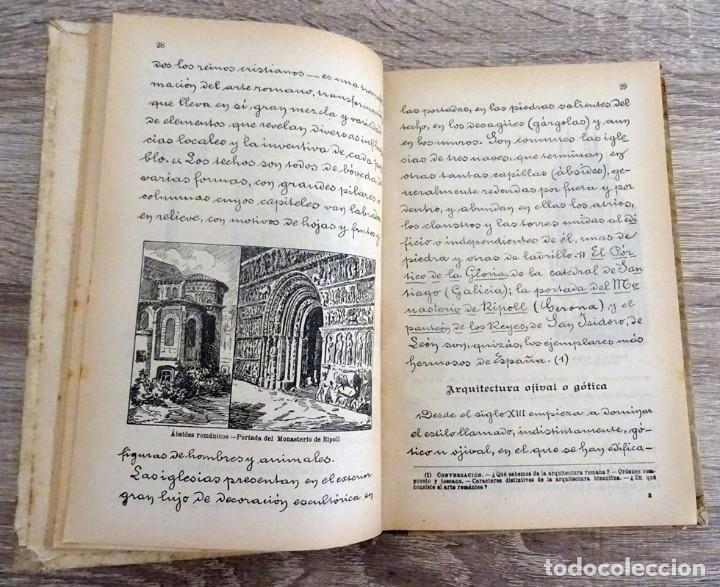 28
dos los reinos cristianos — es una transfor-
mación del arte romano, transformación
que lleva en sí gran mezcla y variedad
de elementos que revelan diversas influen-
cias locales y la inventiva de cada pue-
blo. Los techos son todos de bóveda, de
varias formas, con grandes pilares o
columnas cuyos capiteles van labrados
en relieve, con motivos de hojas y frutos y
Ábsides románicos — Portada del Monasterio de Ripoll
figuras de hombres y animales.
Las iglesias presentan en el exterior
gran lujo de decoración escultórica en
29
las portadas, en las piedras salientes del
techo, en los desagües (gárgolas) y aun
en los muros. Son comunes las igle-
sias de tres naves, que terminan en
otras tantas capillas (ábsides), ge-
neralmente redondas por fuera y por
dentro, y abundan en ellas los atrios,
los claustros y las torres unidas al edi-
ficio o independientes de él, unas de
piedra y otras de ladrillo. El Pór-
tico de la Gloria, de la catedral de San-
tiago (Galicia); la portada del Mo-
nasterio de Ripoll (Gerona) y el
panteón de los Reyes, de San Isidoro, de
León son, quizás, los ejemplares más
hermosos de España. (1)
Arquitectura ojival o gótica
Desde el siglo XIII empieza a dominar
el estilo llamado, indistintamente, gó-
tico u ojival, en el que se han edifica-
(1) CONVERSACIÓN. — ¿Qué sabemos de la arquitectura romana? — Órdenes com-
puesto y toscano. — Caracteres distintivos de la arquitectura bizantina. — ¿En qué
consiste el arte románico?
3
todocoleccion